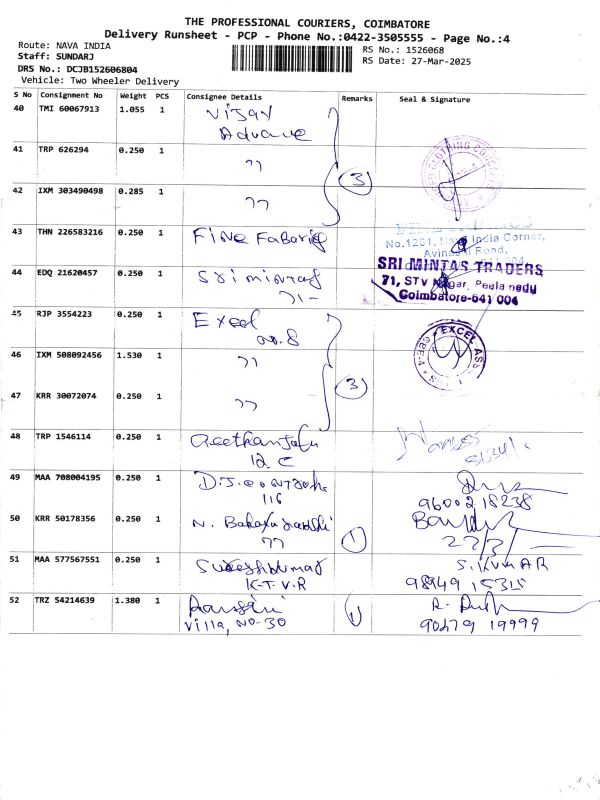 THE PROFESSIONAL COURIERS, COIMBATORE
Delivery Runsheet - PCP - Phone No.:0422-3505555 - Page No.:4
Route: NAVA INDIA
RS No.: 1526068
Staff: SUNDARJ
RS Date: 27-Mar-2025
DRS No.: DCJB152606804
Vehicle: Two Wheeler Delivery
S No Consignment No Weight PCS Consignee Details Remarks Seal & Signature
40 TMI 60067913 1.055 1 Vijay
Advance
41 TRP 626294 0.250 1 ,,
3
42 IXM 303490498 0.285 1 ,,
43 THN 226583216 0.250 1 Fine Fabarig
No.1201, Nava India Corner,
Avinashi Road,
44 EDQ 21620457 0.250 1
SRI MINTAS TRADERS
71, STV Nagar, Peelamedu
Coimbatore-641 004
45 RJP 3554223 0.250 1 Excel
no.8
EXCEL ASS
46 IXM 508092456 1.530 1 ,,
3
47 KRR 30072074 0.250 1 ,,
48 TRP 1546114 0.250 1
12 C
49 MAA 708004195 0.250 1
116
9600218238
50 KRR 50178356 0.250 1 N.
,,
1
27/3/
51 MAA 577567551 0.250 1 Sureshkumar
S.KUMAR
K.T.V.R
98949 15315
52 TRZ 54214639 1.380 1
1
R.
Villa, No-30
90479 19999